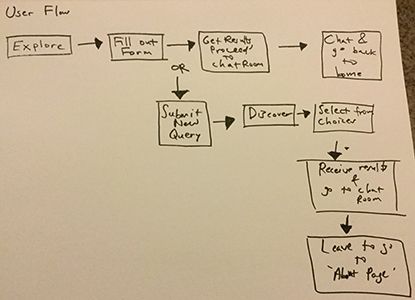 User Flow
Explore
Fill out
Form
Get Results
Proceed
to
chat Room
Chat &
go back
to
home
OR
Submit
New
Query
Discover
Select from
Choices
Receive results
&
go to chat
Room
Leave to go
to
'About Page'